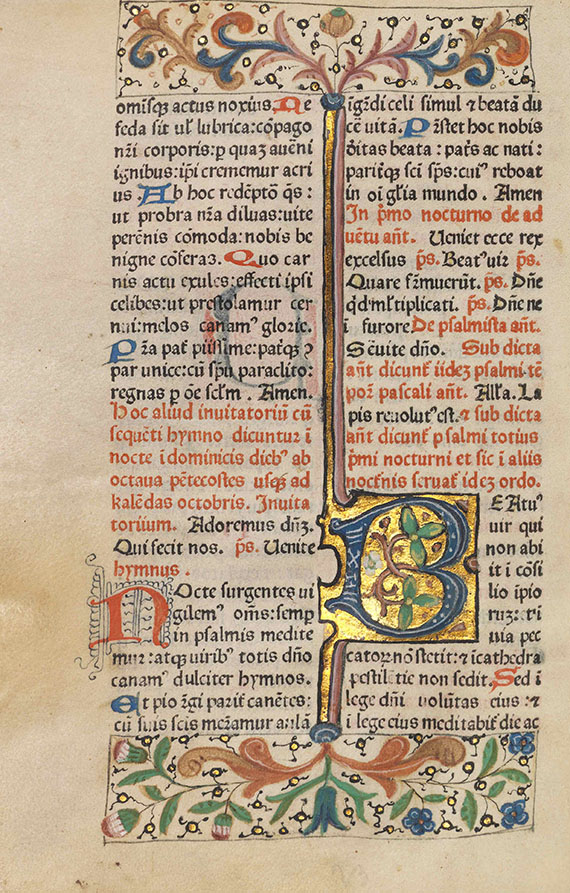 omisq̃ actus noxius. Ne
feda sit ul̃ lubrica: cõpago
nr̃i corporis: ꝑ quaʒ aueni
ignibus: ipi crememur acri
us. Ab hoc redẽptor q̃s:
ut probra nr̃a diluas: uite
perẽnis cõmoda: nobis be
nigne cõferas. Quo car
nis actu exules: effecti ipsi
celibes: ut prestolamur cer
nui: melos canamꝰ glorie.
Pr̃a pat̃ piissime: patq̃ꝫ ↄ
par unice: cũ spũ paraclito:
regnas ꝑ õe sclm̃. Amen.
Hoc aliud inuitatoriũ cũ
sequẽti hymno dicuntur i
nocte i dominicis diebꝰ ab
octaua pẽtecostes usqꝫ ad
kalẽdas octobris. Inuita
torium. Adoremus dñʒ.
Qui fecit nos. p̃s. Uenite
hymnus.
Nocte surgentes ui
gilemꝰ om̃s: semꝑ
in psalmis medite
mur: atqꝫ uiribꝰ totis dño
canamꝰ dulciter hymnos.
Et pio r̃gi parit̃ canẽtes:
cũ suis scis mer̃amur aulã
igr̃di celi simul ⁊ beatã du
cẽ uitã. Pr̃stet hoc nobis
ditas beata: pat̃s ac nati:
paritq̃ sci sp̃s: cuiꝰ reboat
in oi gl̃ia mundo. Amen
In p̃mo nocturno de ad
uẽtu ant̃. Ueniet ecce rex
excelsus p̃s. Beatꝰ uir p̃s.
Quare fr̃muerũt. p̃s. Dñe
qd̃ ml̃tiplicati. p̃s. Dñe ne
i furore De psalmista ant̃.
Seuite dño. Sub dicta
ant̃ dicunt̃ iidez psalmi. tẽ
por̃ pascali ant̃. All̃a. La
pis reuolutꝰ est. ⁊ sub dicta
ant̃ dicunt̃ psalmi totius
p̃mi nocturni et sic i aliis
noct̃nis seruat̃ idez ordo.
BEAtuꝰ
uir qui
non abi
it i cõsi
lio ipio
ruz: et i
uia pec
catoꝝ nõ stetit: ⁊ i cathedra
pestilẽtie non sedit. Sed i
lege dñi uolũtas eius: ⁊
i lege eius meditabit̃ die ac